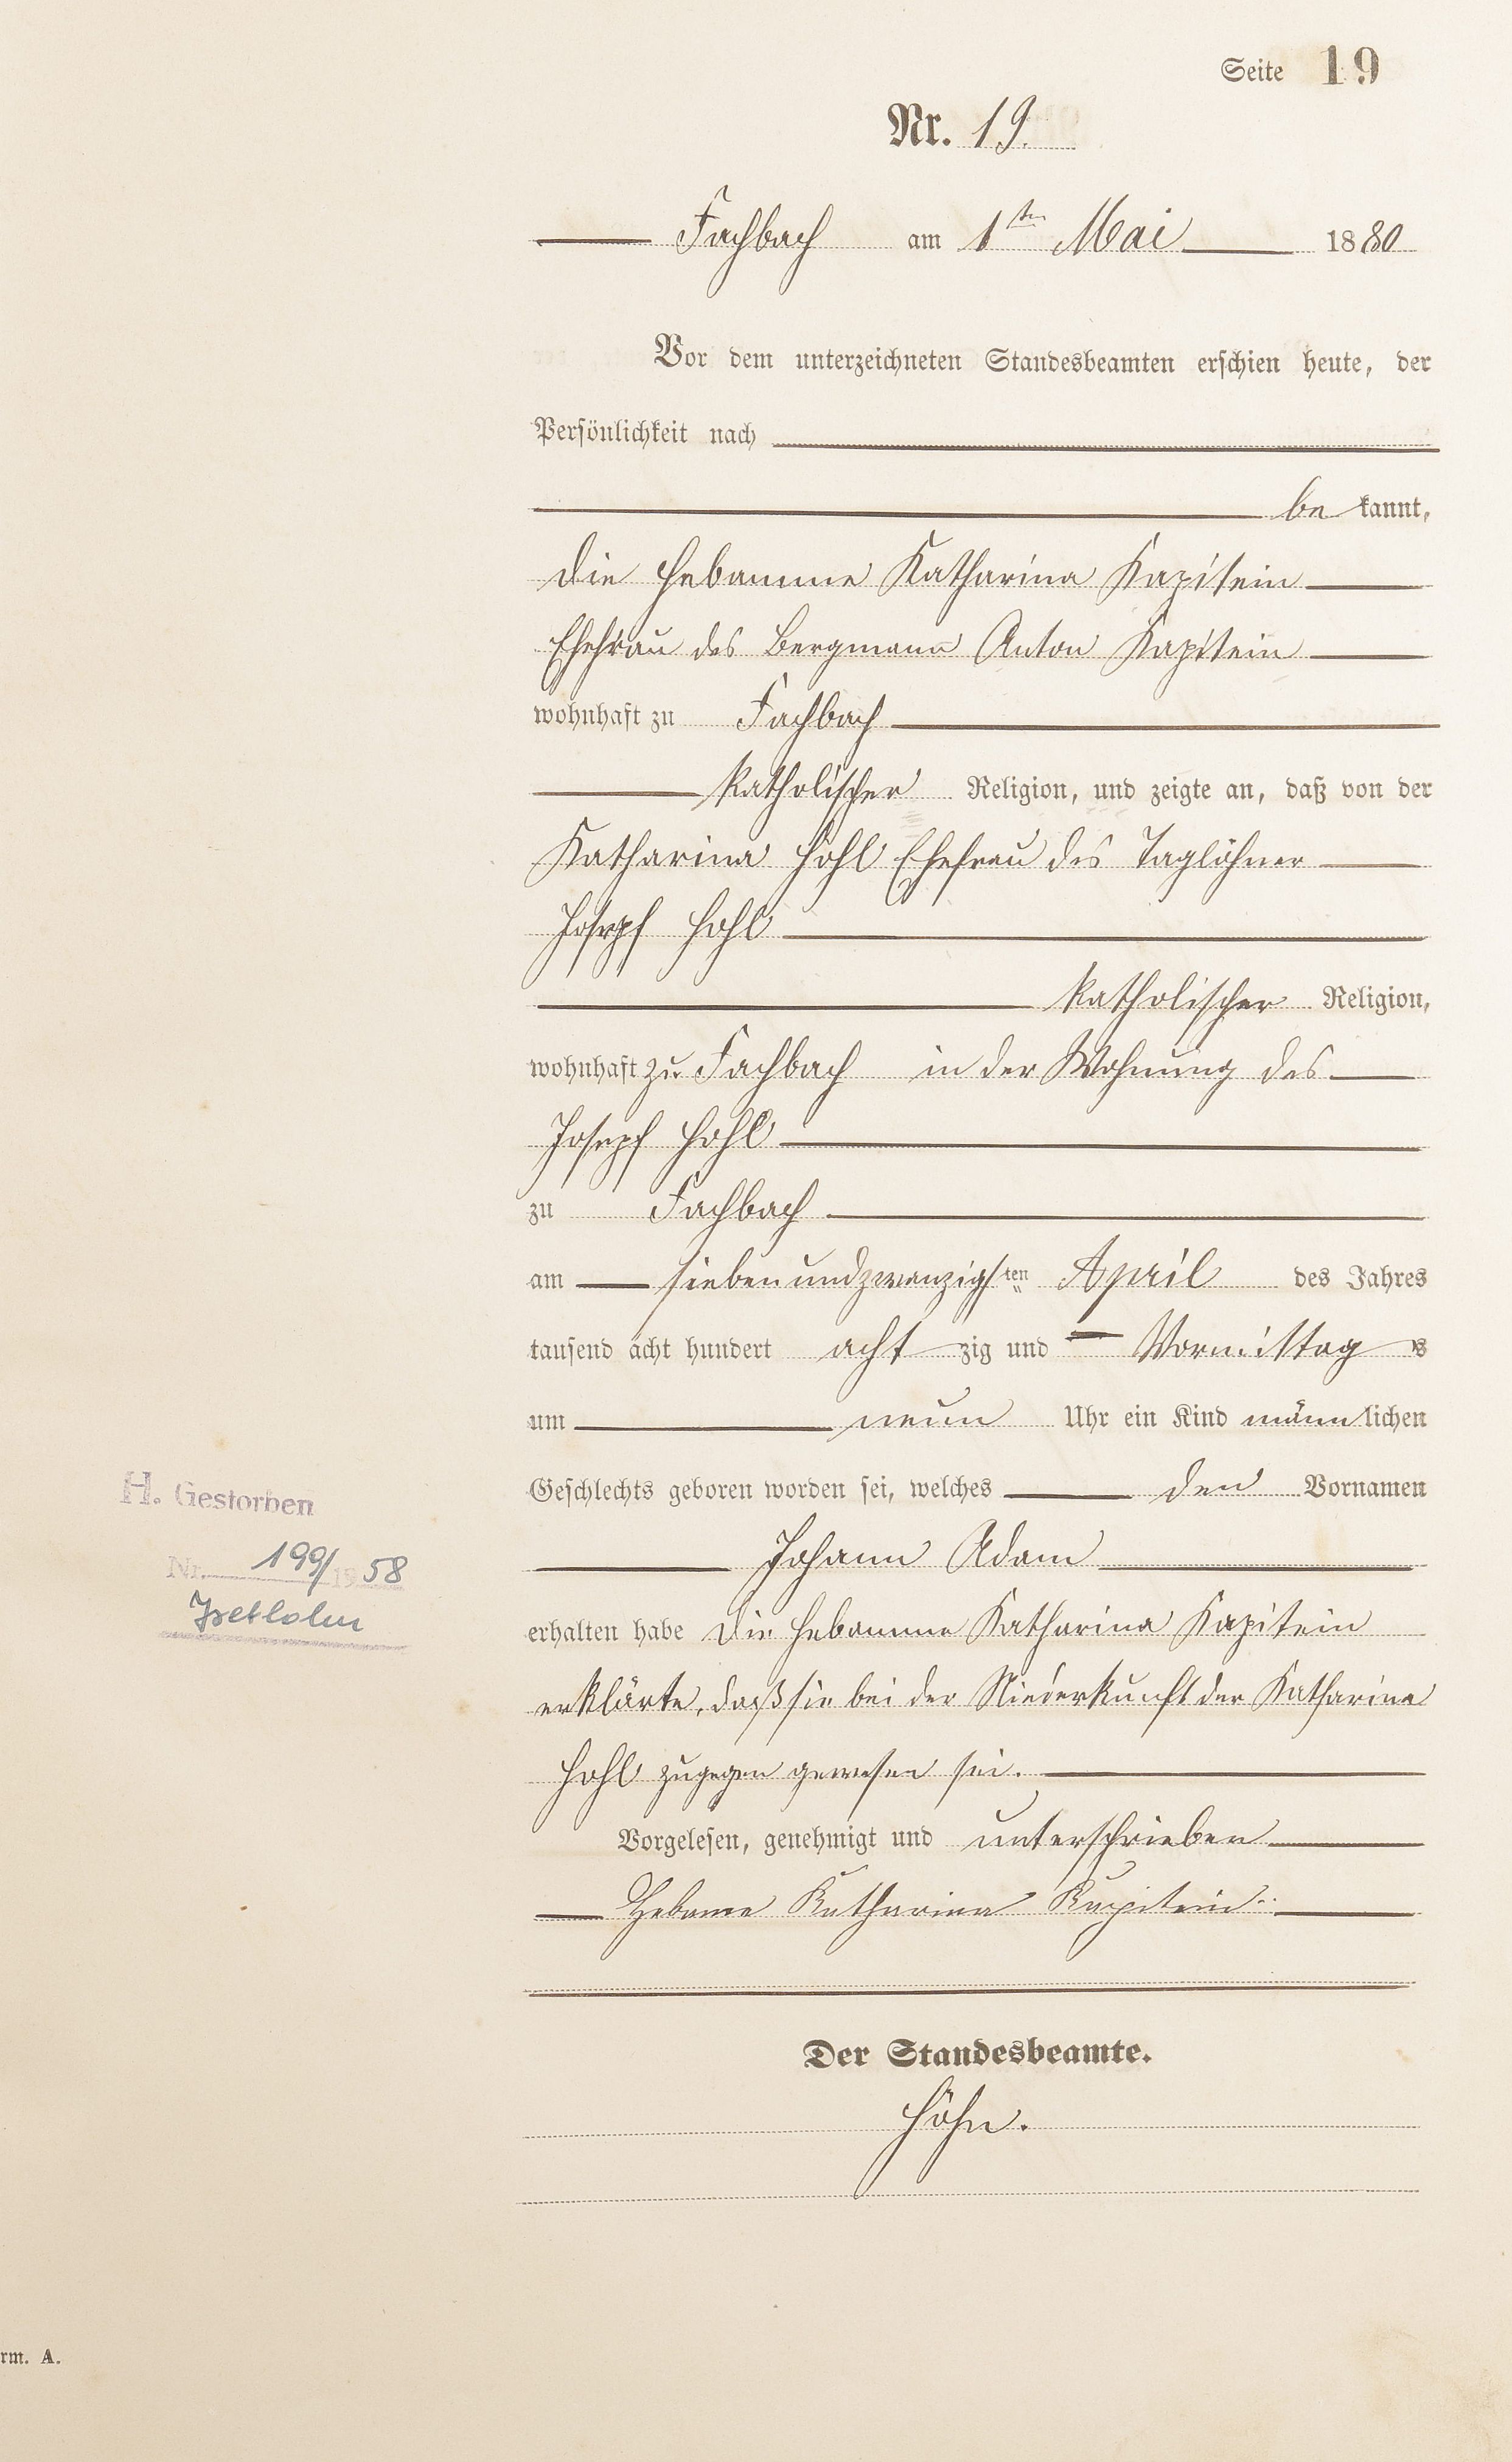 Seite 19
Nr. 19.
Fachbach am 1ten Mai 1880
Vor dem unterzeichneten Standesbeamten erschien heute, der
Persönlichkeit nach
bekannt,
die Hebamme Katharina Kapitein
Ehefrau des Bergmann Anton Kapitein
wohnhaft zu Fachbach
katholischer Religion, und zeigte an, daß von der
Katharina Hohl Ehefrau des Taglöhner
Joseph Hohl
katholischer Religion,
wohnhaft zu Fachbach in der Wohnung des
Joseph Hohl
zu Fachbach
am siebenundzwanzigsten April des Jahres
tausend acht hundert achtzig und Vormittags
um neun Uhr ein Kind männlichen
Geschlechts geboren worden sei, welches den Vornamen
Johann Adam
erhalten habe die Hebamme Katharina Kapitein
erklärte, daß sie bei der Niederkunft der Katharina
Hohl zugegen gewesen sei.
Vorgelesen, genehmigt und unterschrieben
Hebame Katharina Kapitein
Der Standesbeamte.
Höhn.
H. Gestorben
Nr. 199/1958
rm. A.